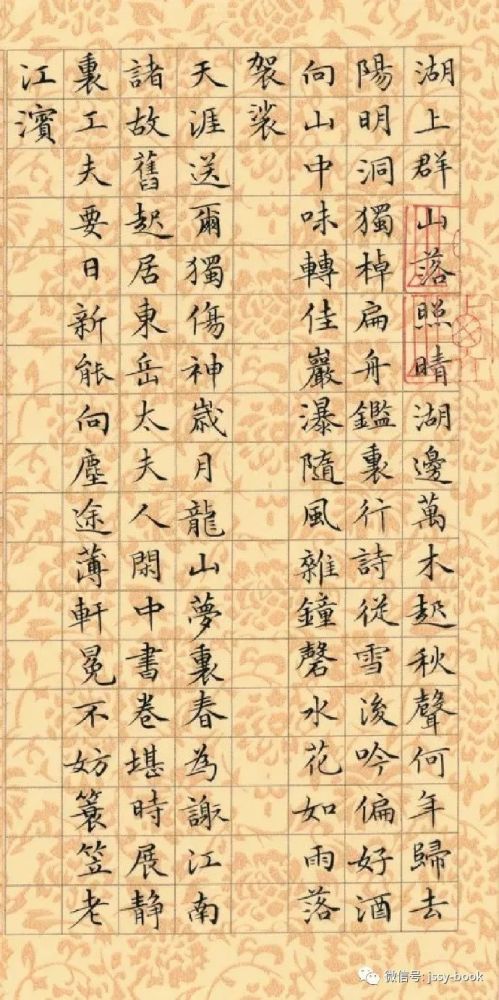 湖上群山落照晴湖邊萬木起秋聲何年歸去
陽明洞獨棹扁舟鑑裏行詩從雪後吟偏好酒
向山中味轉佳巖瀑隨風雜鐘磬水花如雨落
袈裟
天涯送爾獨傷神歲月龍山夢裏春為謝江南
諸故舊起居東岳太夫人閑中書卷堪時展靜
裏工夫要日新能向塵途薄軒冕不妨簑笠老
江濱
微信号: jssy-book